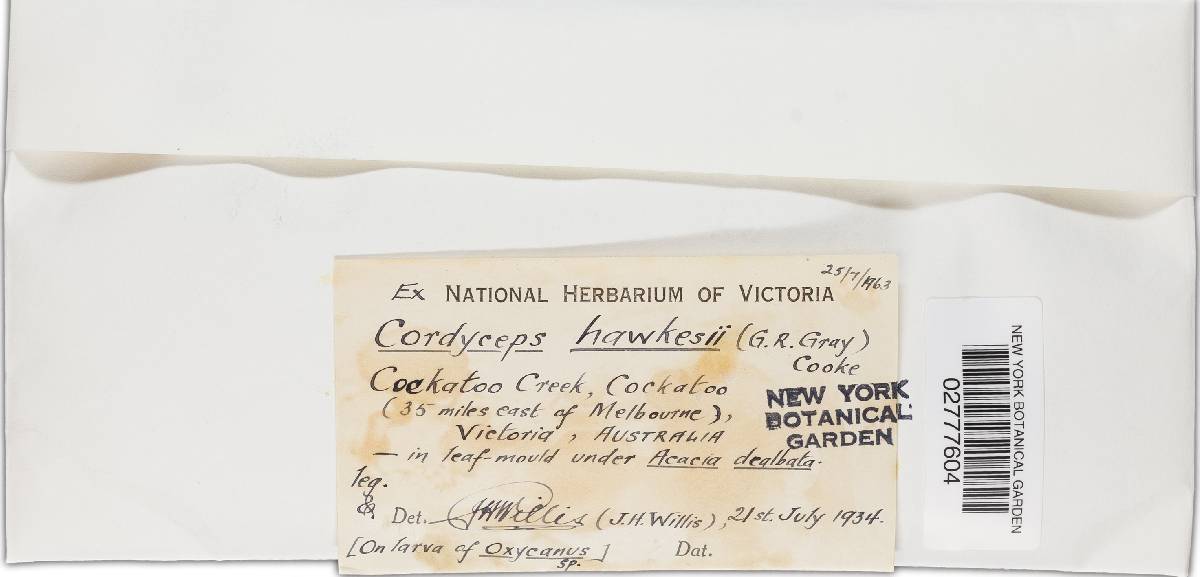 25/7/1963
Ex NATIONAL HERBARIUM OF VICTORIA
Cordyceps hawkesii (G. R. Gray)
Cooke
Cockatoo Creek, Cockatoo
(35 miles east of Melbourne),
Victoria, AUSTRALIA
— in leaf-mould under Acacia dealbata.
leg.
& Det. JHWillis (J.H. Willis), 21st. July 1934.
[On larva of Oxycanus sp.] Dat.
NEW YORK
BOTANICAL
GARDEN
NEW YORK BOTANICAL GARDEN
02777604